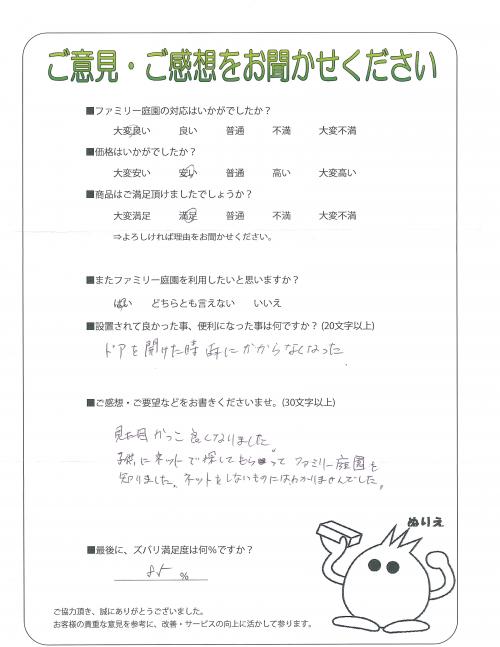 ご意見・ご感想をお聞かせください
■ファミリー庭園の対応はいかがでしたか？
大変良い 良い 普通 不満 大変不満
■価格はいかがでしたか？
大変安い 安い 普通 高い 大変高い
■商品はご満足頂けましたでしょうか？
大変満足 満足 普通 不満 大変不満
⇒よろしければ理由をお聞かせください。
■またファミリー庭園を利用したいと思いますか？
はい どちらとも言えない いいえ
■設置されて良かった事、便利になった事は何ですか？(20文字以上)
ドアを開けた時雨にかからなくなった.
■ご感想・ご要望などをお書きくださいませ。(30文字以上)
見た目かっこ良くなりました
子供にネットで探してもらって ファミリー庭園を
知りました。ネットをしないものにはわかりませんでした。
ぬりえ
■最後に、ズバリ満足度は何％ですか？
85 %
ご協力頂き、誠にありがとうございました。
お客様の貴重な意見を参考に、改善・サービスの向上に活かして参ります。